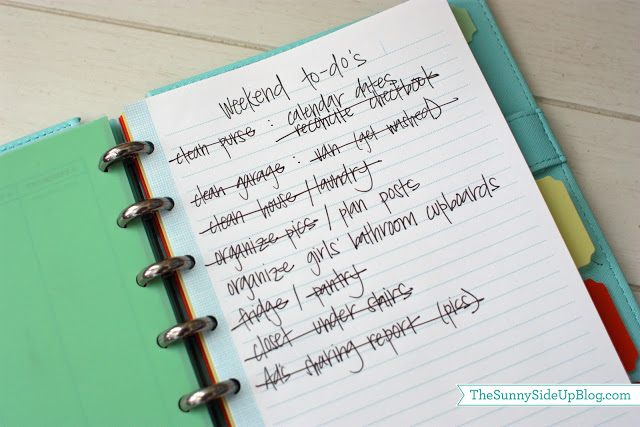 Weekend to-do's
clean purse : calendar dates
reconcile checkbook
clean garage : van (get washed)
clean house / laundry
organize pics / plan posts
organize girls' bathroom cupboards
fridge / pantry
closet under stairs
Ad's sharing report (pics)
TheSunnySideUpBlog.com